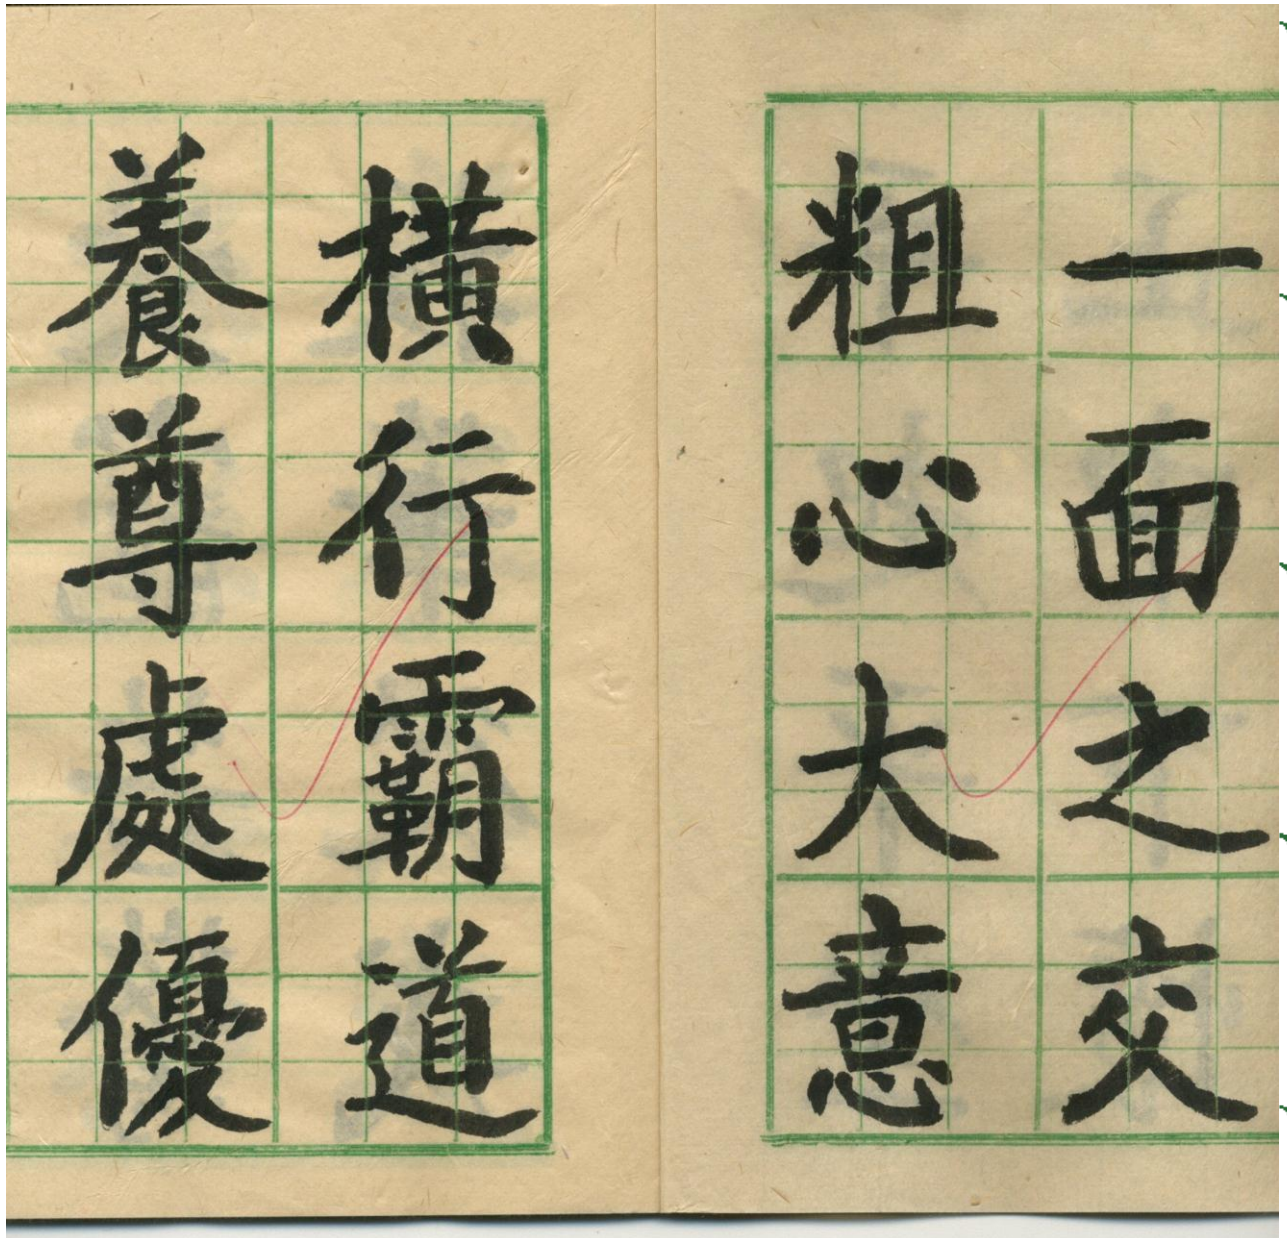 一面之交
粗心大意
橫行霸道
養尊處優